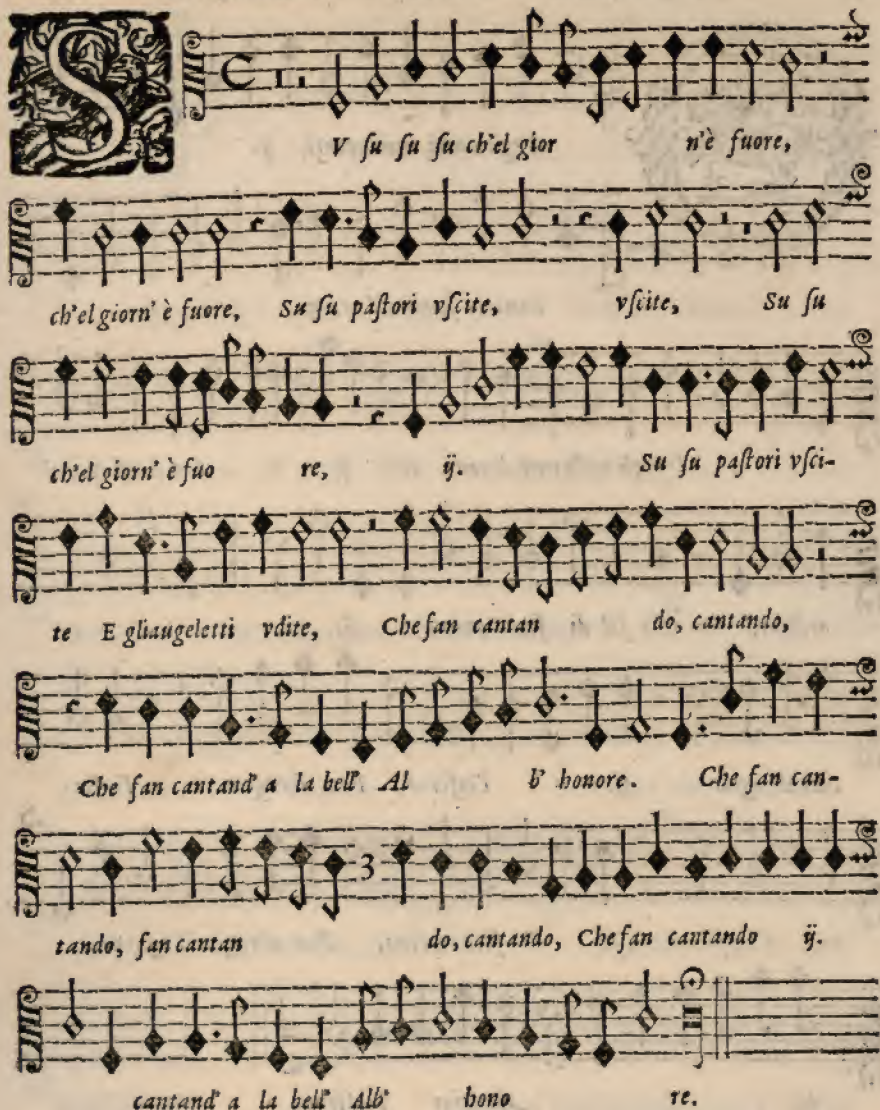 S
V ſu ſu ſu ch'el gior n'è fuore,
ch'el giorn' è fuore, Su ſu paſtori vſcite, vſcite, Su ſu
ch'el giorn' è fuo re, ij. Su ſu paſtori vſci-
te E gliaugeletti vdite, Che fan cantan do, cantando,
Che fan cantand' a la bell' Al b' honore. Che fan can-
3
tando, fan cantan do, cantando, Che fan cantando ij.
cantand' a la bell' Alb' hono re.